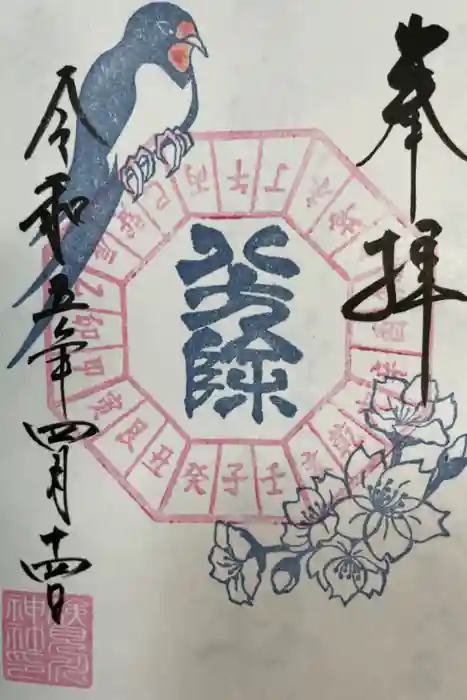 奉拝
八方除
丙午丁
未坤申
庚酉辛
戌乾亥
壬子癸
丑艮寅
甲卯乙
辰巽巳
令和五年四月十四日
神社印